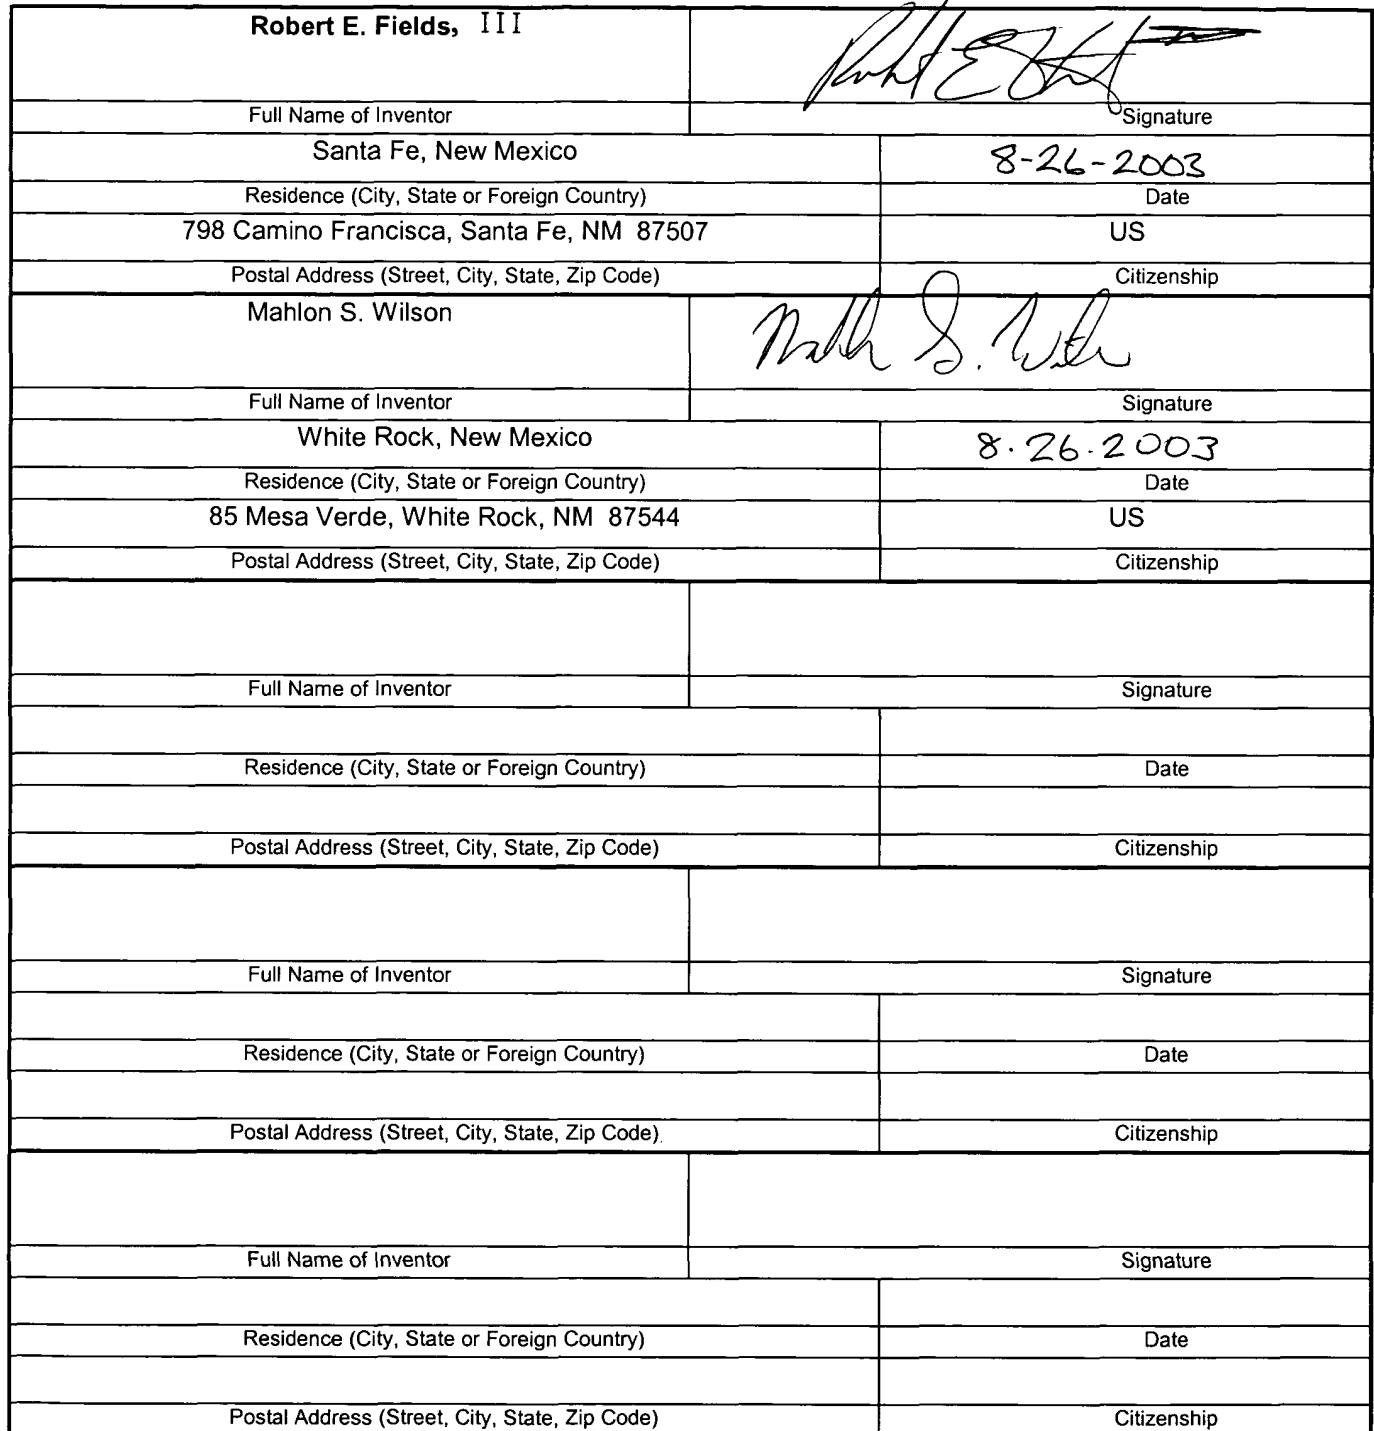 Robert E. Fields, III
Full Name of Inventor Signature
Santa Fe, New Mexico 8-26-2003
Residence (City, State or Foreign Country) Date
798 Camino Francisca, Santa Fe, NM 87507 US
Postal Address (Street, City, State, Zip Code) Citizenship
Mahlon S. Wilson Mahlon S. Wilson
Full Name of Inventor Signature
White Rock, New Mexico 8.26.2003
Residence (City, State or Foreign Country) Date
85 Mesa Verde, White Rock, NM 87544 US
Postal Address (Street, City, State, Zip Code) Citizenship
Full Name of Inventor Signature
Residence (City, State or Foreign Country) Date
Postal Address (Street, City, State, Zip Code) Citizenship
Full Name of Inventor Signature
Residence (City, State or Foreign Country) Date
Postal Address (Street, City, State, Zip Code) Citizenship
Full Name of Inventor Signature
Residence (City, State or Foreign Country) Date
Postal Address (Street, City, State, Zip Code) Citizenship